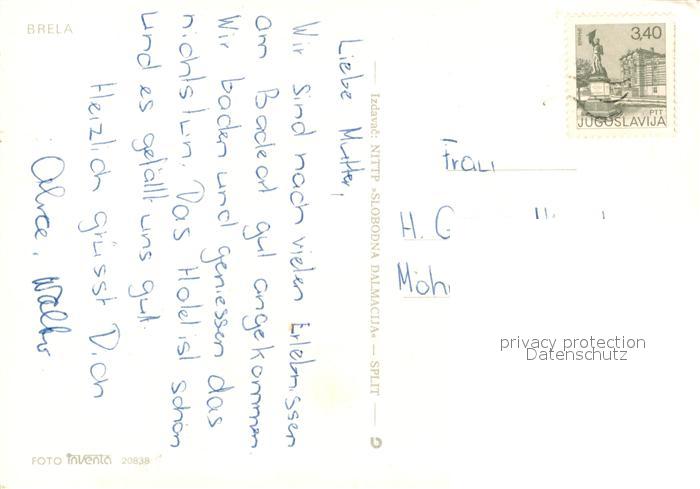 BRELA
Liebe Mutter,
Wir sind nach vielen Erlebnissen
am Badeort gut angekommen.
Wir baden und geniessen das
nichtstun. Das Hotel ist schön
und es gefällt uns gut.
Herzlich grüsst Dich
Walter
Izdavač: NITTP »SLOBODNA DALMACIJA« — SPLIT
3,40
PTT
JUGOSLAVIJA
Frau
H. G
Möh
privacy protection
Datenschutz
FOTO inventa 20838